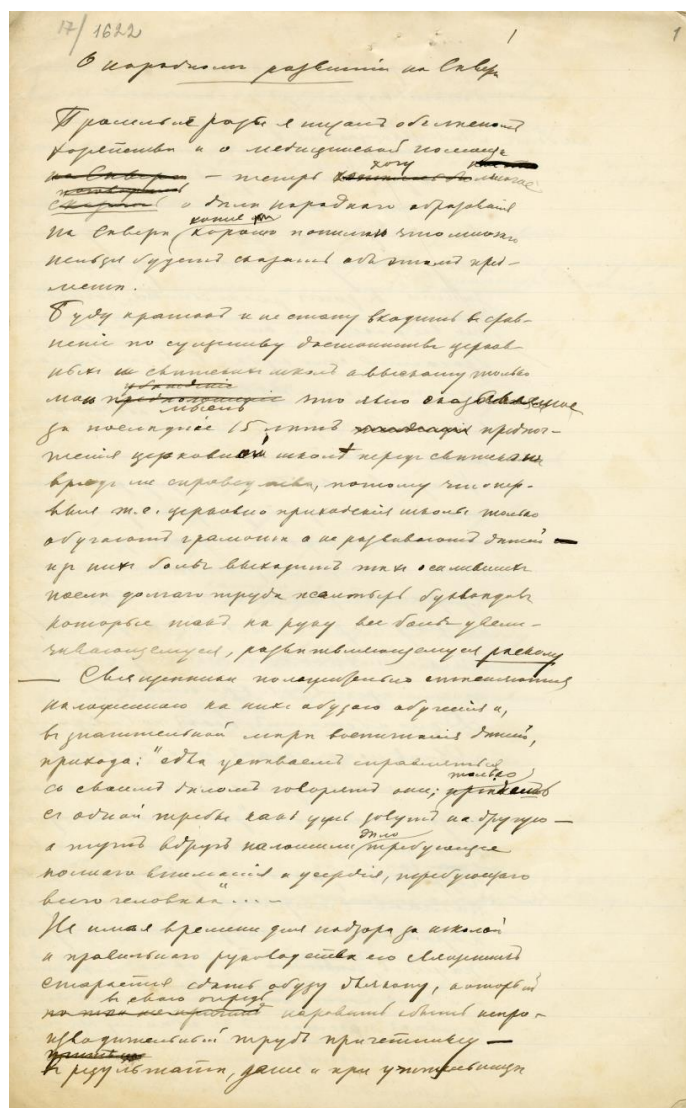 17/1622
1
О народномъ развитіи на Сѣверѣ
Прошлые разы я писалъ объ
хозяйства и о медицинской помощи
на Сѣверѣ — теперь хочу многое
о дѣлѣ народнаго образованія
на Сѣверѣ хорошо что многаго
нельзя будетъ сказать объ этомъ пред-
метѣ.
Буду кратокъ и не стану входить въ срав-
неніе по существу достоинствъ церков-
ныхъ и свѣтскихъ школъ а выскажу только
убѣжденіе
мою предположеніе что явно оказываемое
мысль
за послѣдніе 15 лѣтъ предпоч-
тенія церковной школѣ передъ свѣтскою
врядъ ли справедливо, потому что пер-
выя т.е. церковно приходскія школы только
обучаютъ грамотѣ а не развиваютъ дѣтей —
изъ нихъ болѣе выходитъ осилившихъ
послѣ долгаго труда псалтырь буквоѣдовъ
которые такъ на руку все болѣе увели-
чивающемуся, развѣтвляющемуся расколу
— Священники положительно стѣсняются
наложеннаго на нихъ обузаго обученія и,
въ значительной мѣрѣ воспитанія дѣтей,
прихода: "едва успѣваемъ справляться
со своимъ дѣломъ говорятъ они; только
съ одной требы какъ ужъ зовутъ на другую —
а тутъ вдругъ наложили дѣло требующее
полнаго вниманія и усердія, требующаго
всего человѣка"....
Не имѣя времени для надзора за школой
и правильнаго руководства его священникъ
старается сдать обузу дьякону, который
въ свою очередь
норовитъ сбыть непро-
изводительный трудъ причетнику —
въ результатѣ, даже и при